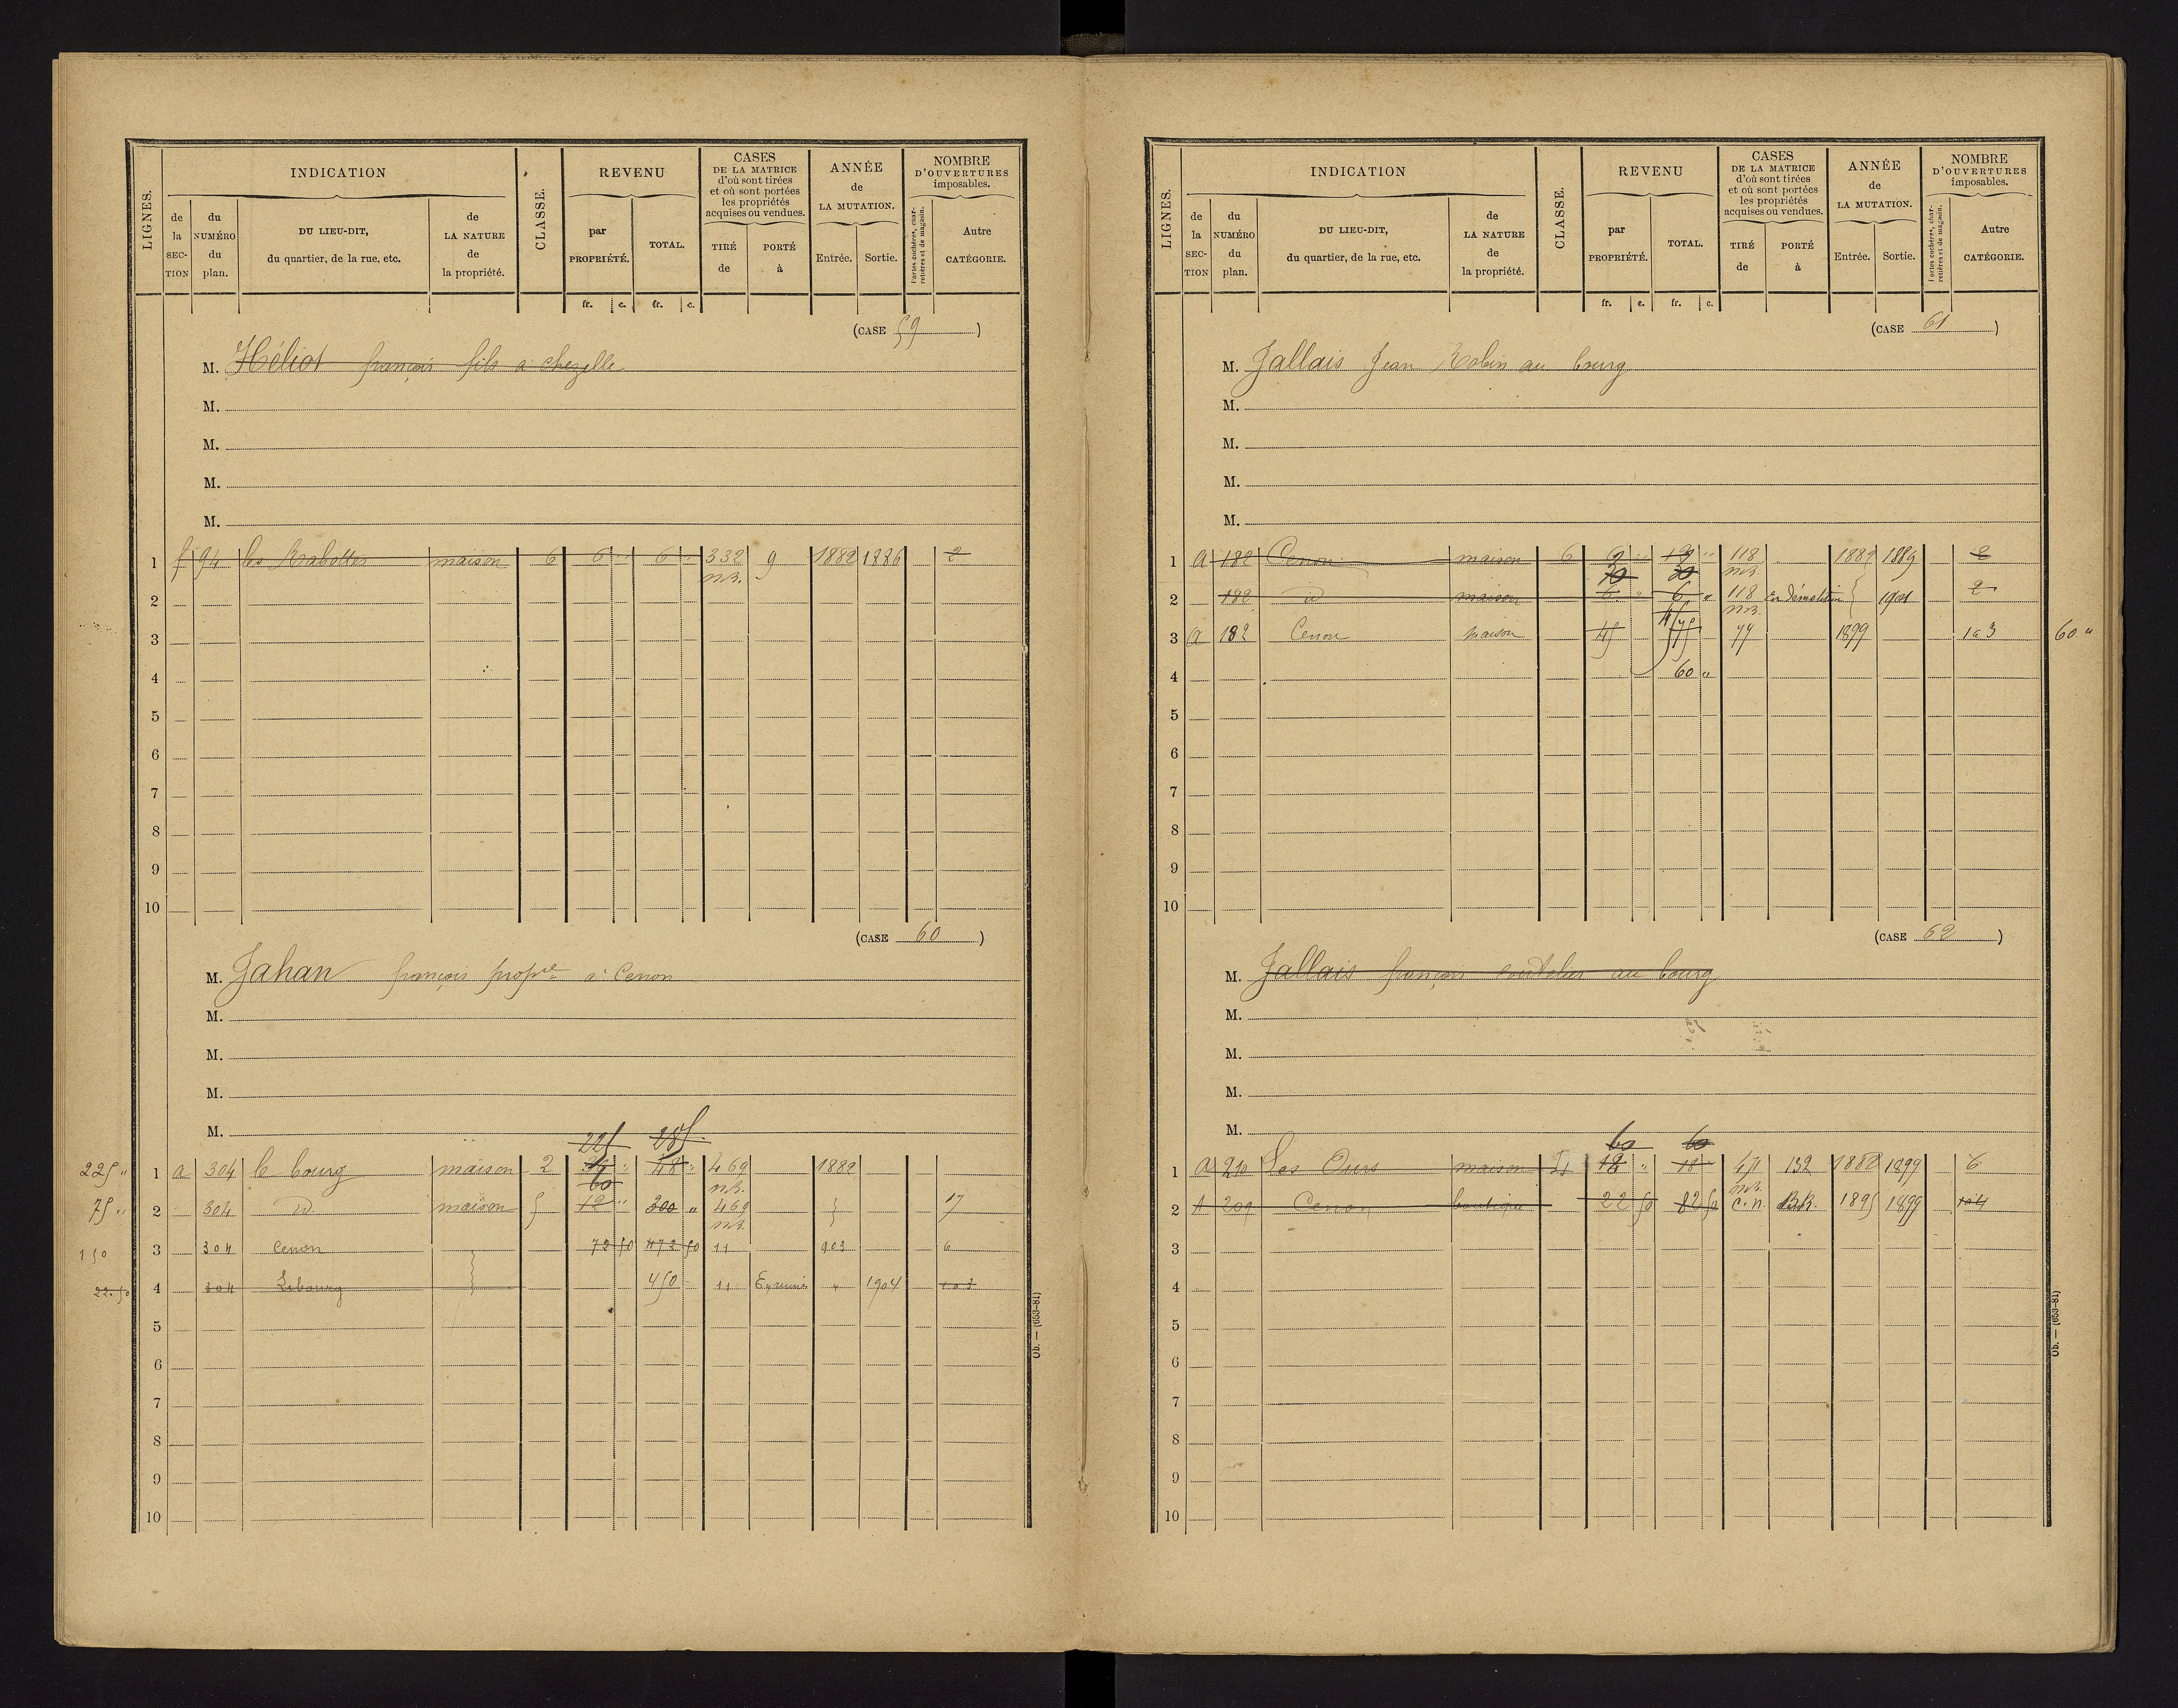 LIGNES.
INDICATION
de la SECTION
du NUMÉRO du plan.
DU LIEU-DIT, du quartier, de la rue, etc.
de LA NATURE de la propriété.
CLASSE.
REVENU
par PROPRIÉTÉ.
TOTAL.
fr. c. fr. c.
CASES DE LA MATRICE d'où sont tirées et où sont portées les propriétés acquises ou vendues.
TIRÉ de
PORTÉ à
ANNÉE de LA MUTATION.
Entrée. Sortie.
NOMBRE D'OUVERTURES imposables.
Portes cochères, charretières et de magasin.
Autre CATÉGORIE.
(CASE 59)
M. Héliot françois fils à chezelle
M.
M.
M.
M.
1 f 94 les maison 6 6 " 6 " 332 9 1882 1886 2
2
3
4
5
6
7
8
9
10
(CASE 60)
M. Jahan françois propre à Cenon
M.
M.
M.
M.
225 285
225 " 1 a 304 le bourg maison 2 36 " 48 " 469 1882
60
75 " 2 304 d maison 5 12 " 300 " 469 17
150 3 304 Cenon 72 50 472 50 11 903 6
22.50 4 304 Lebourg 450 11 " 1904 1 a 3
5
6
7
8
9
10
Ob. — (653-81)
LIGNES.
INDICATION
de la SECTION
du NUMÉRO du plan.
DU LIEU-DIT, du quartier, de la rue, etc.
de LA NATURE de la propriété.
CLASSE.
REVENU
par PROPRIÉTÉ.
TOTAL.
fr. c. fr. c.
CASES DE LA MATRICE d'où sont tirées et où sont portées les propriétés acquises ou vendues.
TIRÉ de
PORTÉ à
ANNÉE de LA MUTATION.
Entrée. Sortie.
NOMBRE D'OUVERTURES imposables.
Portes cochères, charretières et de magasin.
Autre CATÉGORIE.
(CASE 61)
M. Jallais Jean Robin au bourg
M.
M.
M.
M.
1 a 182 Cenon maison 6 118 1882 1889 2
30
2 182 d maison 6 " 6 " 118 En démolition 1901 2
3 a 182 Cenon maison 45 77 1899 1 a 3 60 "
4 60 "
5
6
7
8
9
10
(CASE 62)
M. Jallais françois coutelier au bourg
M.
M.
M.
M.
60 60
1 a 210 Les Ours maison 18 " 18 " 471 132 1882 1899 6
2 A 209 Cenon boutique 22 50 82 50 C.n. 1895 1899
3
4
5
6
7
8
9
10
Ob. — (653-81)